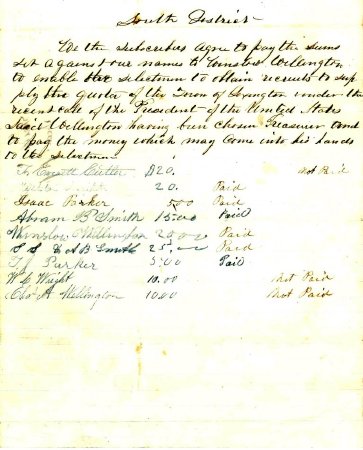 South District
We the subscribers agree to pay the sums
set against our names to Winslow Wellington
to enable the selectmen to obtain recruits to sup
ply the quota of the Town of Lexington under the
recent call of the President of the United States
said Wellington having been chosen Treasurer and
to pay the money which may come into his hands
to the Selectmen
F Everett Cutler $20. not Paid
20. Paid
Isaac Parker 500 Paid
Abram B Smith 15.00 Paid
Winslow Wellington 20.00 Paid
S & A B Smith 25.00 Paid
T J Parker 5.00 Paid
W C Wright 10.00 Not Paid
Chas A Wellington 10.00 Not Paid